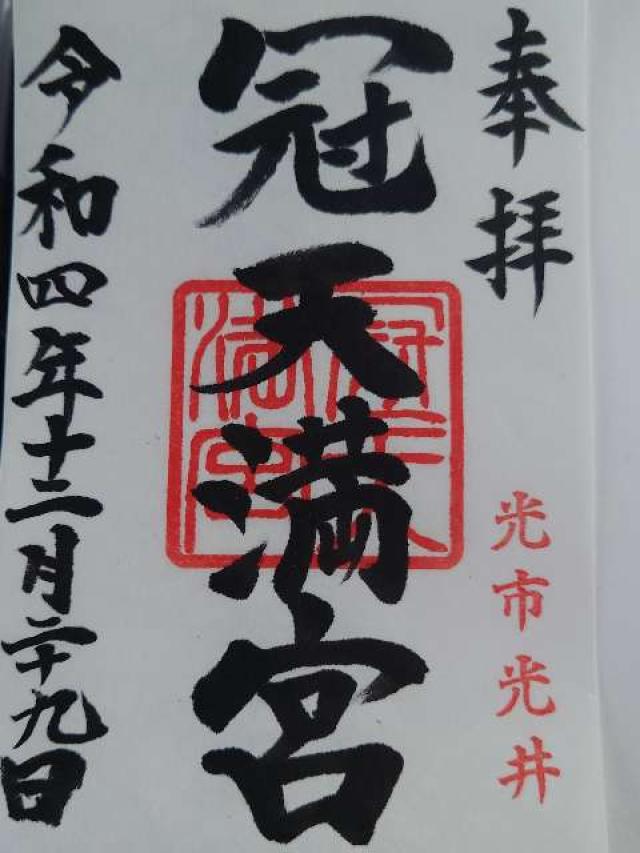 奉拝
光市光井
冠天満宮
冠天満宮
令和四年十二月二十九日